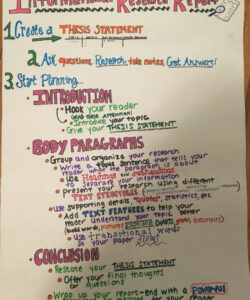 Informational Research Report
1. Create a THESIS STATEMENT
2. Ask questions, Research, take notes, Get Answers!
3. Start Planning...
• INTRODUCTION
• Hook your reader
(GRAB THEIR ATTENTION!)
• Introduce your topic
• Give your THESIS STATEMENT
• BODY PARAGRAPHS
• Group and organize your research
• Write a topic sentence that tells your
reader what the paragraph is about
• Use Headings and Subheadings
to separate our information
• Present your research using different
TEXT STRUCTURES
• Use supporting details - "quotes", statistics, etc.
• Add TEXT FEATURES to help your
reader understand your topic better
(bold words, pictures, captions, graphs, examples)
• Use transitional words
so your paper flows!
• CONCLUSION
• Restate your THESIS STATEMENT
• Offer your final thoughts
or questions
• Wrap up your report - end with a POWERFUL